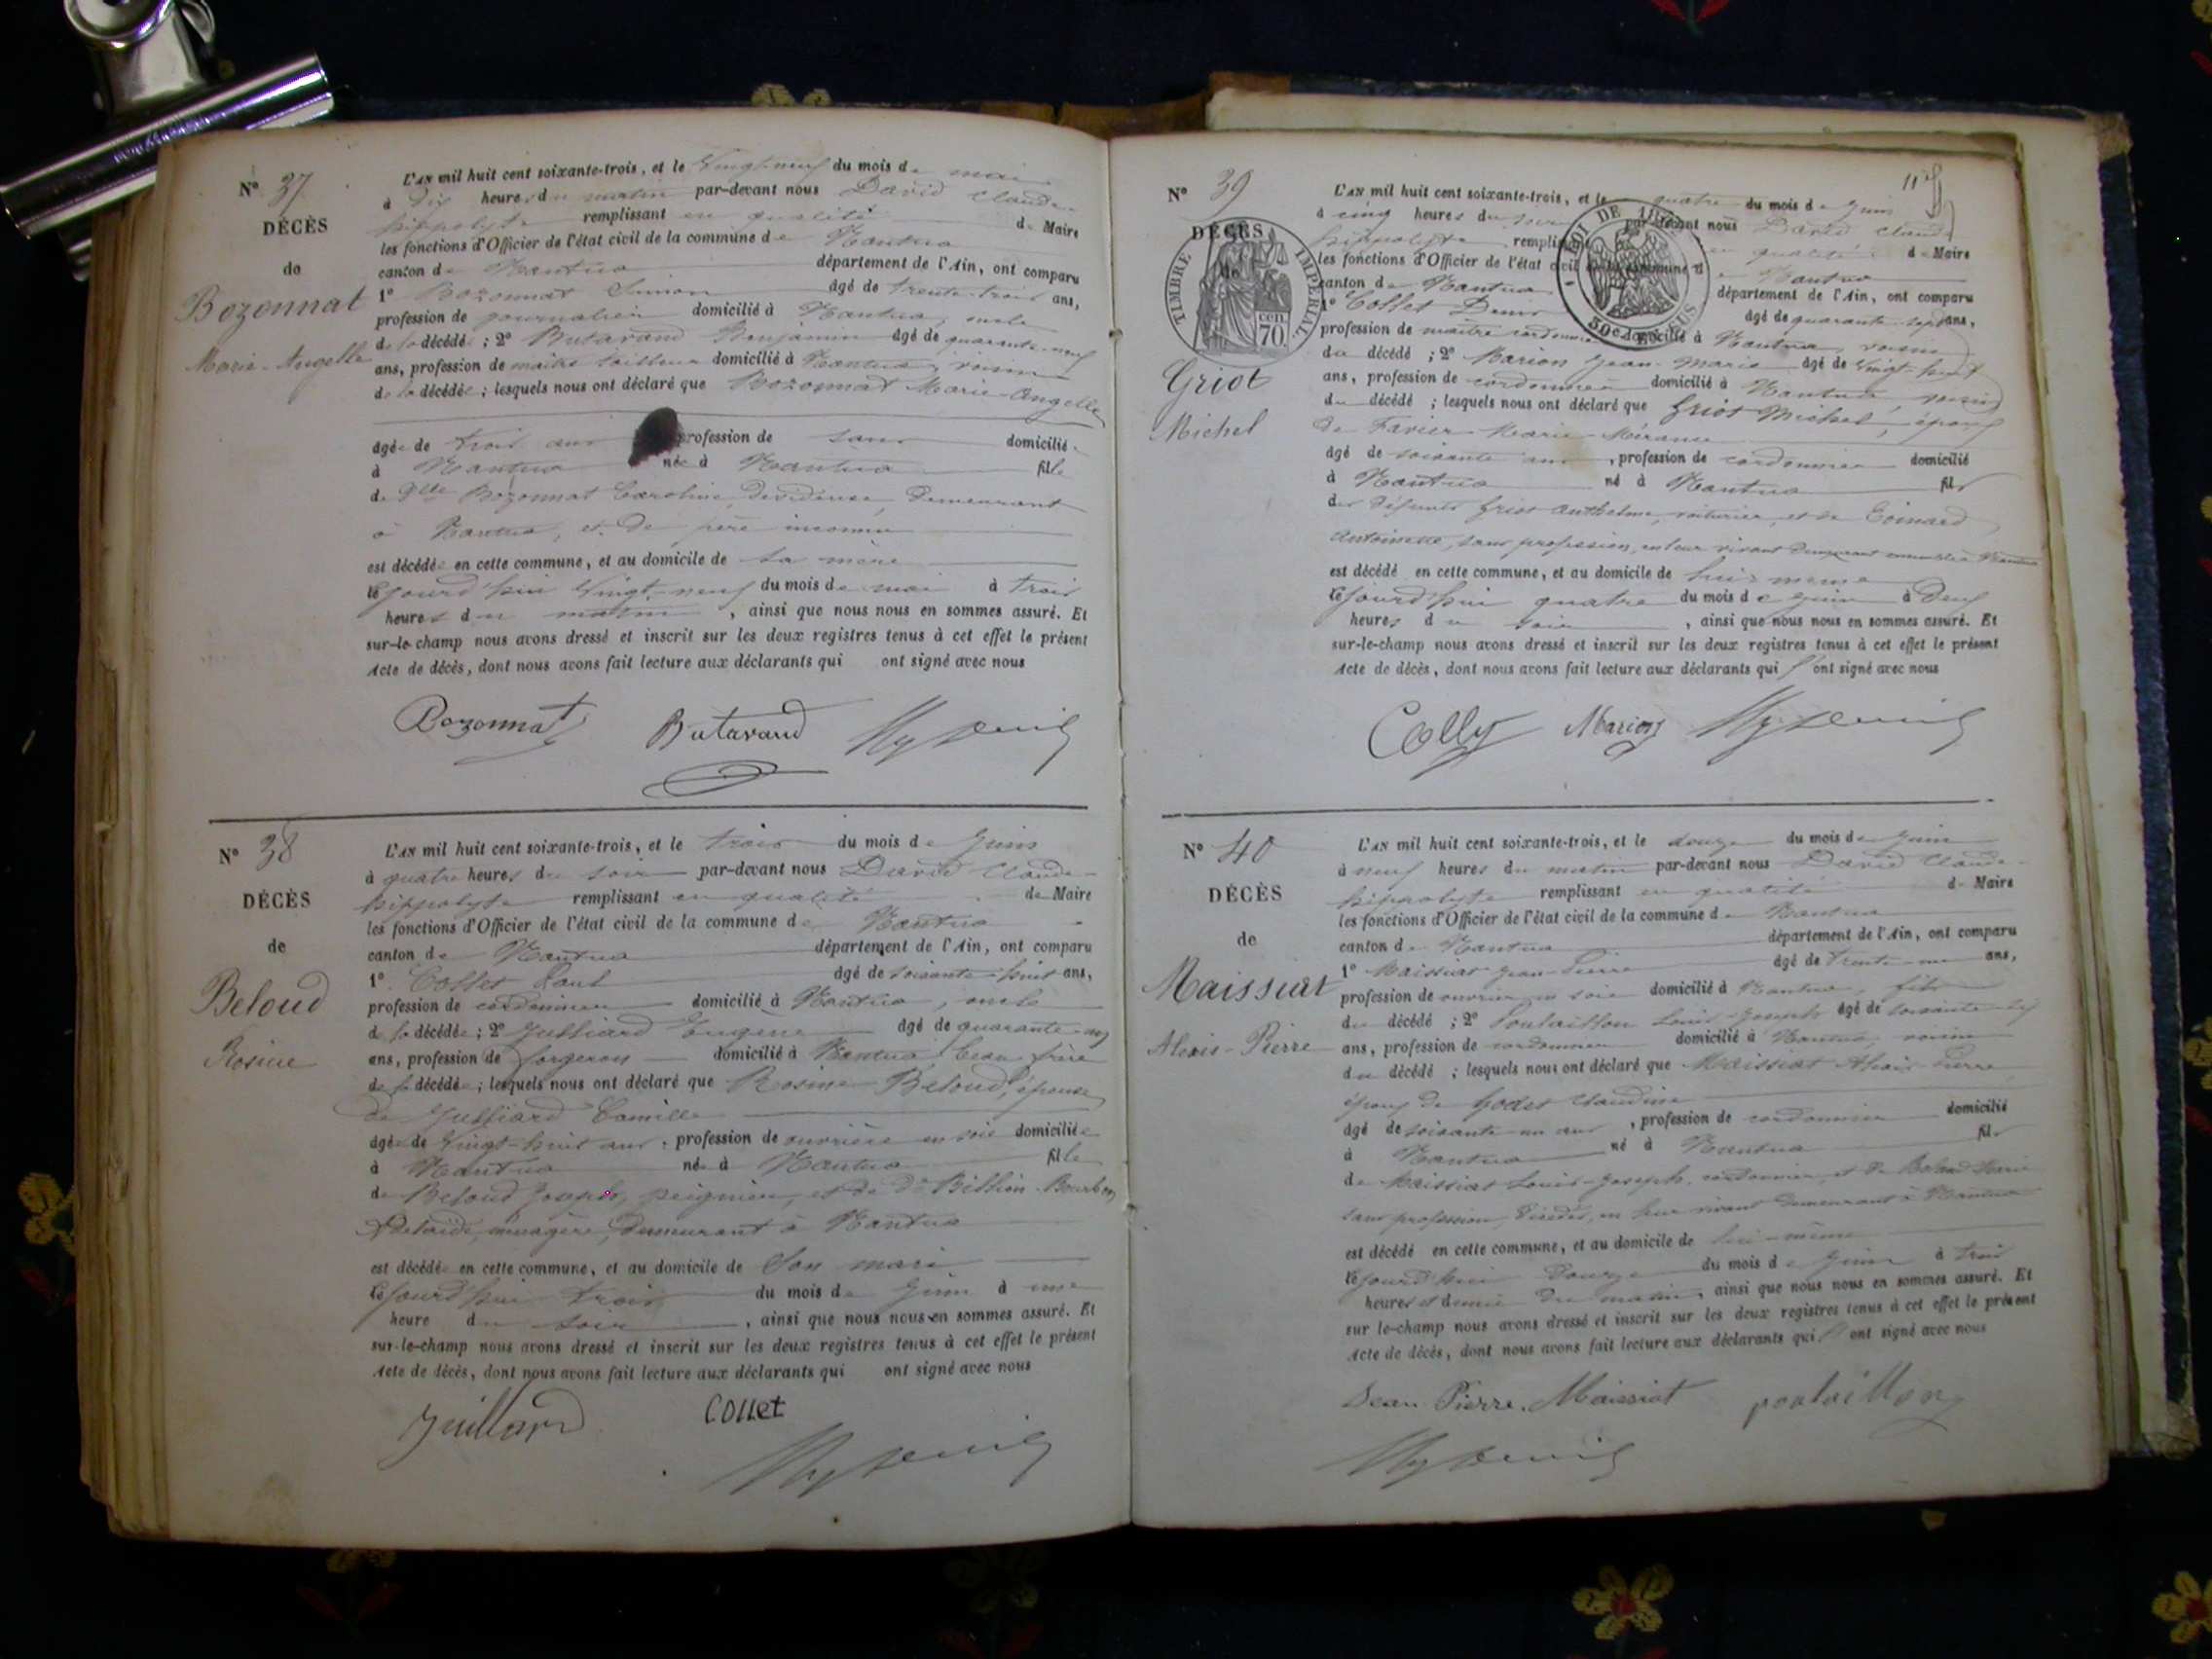 N° 37
DÉCÈS
de
Bozonnat
Marie-Angelle
L'AN mil huit cent soixante-trois, et le vingt-neuf du mois de mai
à dix heures du matin par-devant nous David Claude-
hippolyte remplissant en qualité de Maire
les fonctions d'Officier de l'état civil de la commune de Nantua
canton de Nantua département de l'Ain, ont comparu
1° Bozonnat Simon âgé de trente-trois ans,
profession de journalier domicilié à Nantua, oncle
de la décédée ; 2° Butavand Benjamin âgé de quarante-neuf
ans, profession de maître tailleur domicilié à Nantua, voisin
de la décédée ; lesquels nous ont déclaré que Bozonnat Marie-Angelle
âgée de trois ans profession de sans domiciliée
à Nantua née à Nantua fille
de Dlle Bozonnat Caroline, dévideuse, demeurant
à Nantua, et de père inconnu
est décédée en cette commune, et au domicile de sa mère
cejourd'hui vingt-neuf du mois de mai à trois
heures du matin, ainsi que nous nous en sommes assuré. Et
sur-le-champ nous avons dressé et inscrit sur les deux registres tenus à cet effet le présent
Acte de décès, dont nous avons fait lecture aux déclarants qui ont signé avec nous
Bozonnat Butavand Hyp David
N° 38
DÉCÈS
de
Beloud
Rosine
L'AN mil huit cent soixante-trois, et le trois du mois de juin
à quatre heures du soir par-devant nous David Claude-
hippolyte remplissant en qualité de Maire
les fonctions d'Officier de l'état civil de la commune de Nantua
canton de Nantua département de l'Ain, ont comparu
1° Collet Paul âgé de soixante-huit ans,
profession de cordonnier domicilié à Nantua, oncle
de la décédée ; 2° Juilliard Eugène âgé de quarante-cinq
ans, profession de forgeron domicilié à Nantua beau-frère
de la décédée ; lesquels nous ont déclaré que Rosine Beloud, épouse
de Juilliard Camille
âgée de vingt-huit ans, profession de ouvrière en soie domiciliée
à Nantua née à Nantua fille
de Beloud Joseph, peignier, et de De Billion-Bourbon
Adelaïde, ménagère, demeurant à Nantua
est décédée en cette commune, et au domicile de son mari
cejourd'hui trois du mois de juin à une
heure du soir, ainsi que nous nous en sommes assuré. Et
sur-le-champ nous avons dressé et inscrit sur les deux registres tenus à cet effet le présent
Acte de décès, dont nous avons fait lecture aux déclarants qui ont signé avec nous
Juillard COLLEt
Hyp David
N° 39
DÉCÈS
de
TIMBRE IMPÉRIAL
70 cen.
Griot
Michel
L'AN mil huit cent soixante-trois, et le quatre du mois de juin
à cinq heures du soir par-devant nous David Claude
hippolyte remplissant en qualité de Maire
les fonctions d'Officier de l'état civil de la commune de Nantua
canton de Nantua département de l'Ain, ont comparu
1° Collet Denis âgé de quarante-sept ans,
profession de maître cordonnier domicilié à Nantua, voisin
du décédé ; 2° Marion Jean-Marie âgé de vingt-huit
ans, profession de cordonnier domicilié à Nantua voisin
du décédé ; lesquels nous ont déclaré que Griot Michel, époux
de Favier Marie
âgé de soixante ans, profession de cordonnier domicilié
à Nantua né à Nantua fils
des défunts Griot Anthelme, voiturier, et de Coinard
Antoinette, sans profession, en leur vivant demeurant ensemble à Nantua
est décédé en cette commune, et au domicile de lui-même
cejourd'hui quatre du mois de juin à deux
heures du soir, ainsi que nous nous en sommes assuré. Et
sur-le-champ nous avons dressé et inscrit sur les deux registres tenus à cet effet le présent
Acte de décès, dont nous avons fait lecture aux déclarants qui ont signé avec nous
Collet Marion Hyp David
N° 40
DÉCÈS
de
Maissiat
Alexis-Pierre
L'AN mil huit cent soixante-trois, et le douze du mois de juin
à neuf heures du matin par-devant nous David Claude-
hippolyte remplissant en qualité de Maire
les fonctions d'Officier de l'état civil de la commune de Nantua
canton de Nantua département de l'Ain, ont comparu
1° Maissiat Jean-Pierre âgé de trente-un ans,
profession de ouvrier en soie domicilié à Nantua, fils
du décédé ; 2° Poulaillon Louis-Joseph âgé de soixante-six
ans, profession de cordonnier domicilié à Nantua, voisin
du décédé ; lesquels nous ont déclaré que Maissiat Alexis-Pierre
époux de Godet Claudine
âgé de soixante-un ans, profession de cordonnier domicilié
à Nantua né à Nantua fils
de Maissiat Louis-Joseph, cordonnier, et de Marie
sans profession, décédés, en leur vivant demeurant à Nantua
est décédé en cette commune, et au domicile de lui-même
cejourd'hui douze du mois de juin à trois
heures et demie du matin, ainsi que nous nous en sommes assuré. Et
sur-le-champ nous avons dressé et inscrit sur les deux registres tenus à cet effet le présent
Acte de décès, dont nous avons fait lecture aux déclarants qui ont signé avec nous
Jean Pierre Maissiat poulaillon
Hyp David